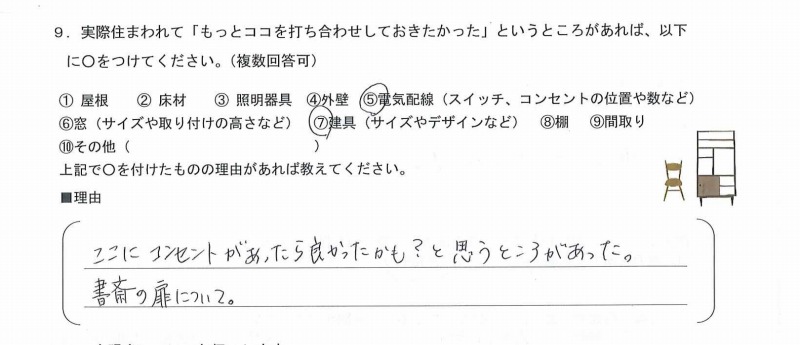 9．実際住まわれて「もっとココを打ち合わせしておきたかった」というところがあれば、以下
に〇をつけてください。（複数回答可）
① 屋根　② 床材　③ 照明器具　④外壁　⑤電気配線（スイッチ、コンセントの位置や数など）
⑥窓（サイズや取り付けの高さなど）　⑦建具（サイズやデザインなど）　⑧棚　⑨間取り
⑩その他（　　　　　　　　　　　　）
上記で〇を付けたものの理由があれば教えてください。
■理由
ここに コンセントがあったら良かったかも？と思うところがあった。
書斎の扉について。